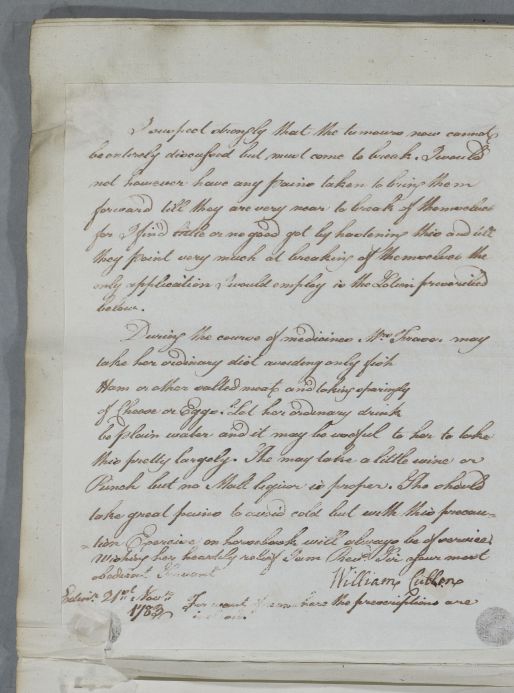 I suspect strongly that the tumours now cannot
be entirely discussed but must come to break. I would
not however have any pains taken to bring them
forward till they are very near to break of themselves
for I find little or no good got by hastening this and till
they point very much at breaking of themselves the
only application I would employ is the Lotion prescribed
below.
During the course of medicines Mrs may
take her ordinary diet avoiding only fish
Ham or other salted meat and taking sparingly
of Cheese or Eggs. Let her ordinary drink
be plain water and it may be useful to her to take
this pretty largely. She may take a little wine or
Punch but no Malt liquor is proper. She should
take great pains to avoid cold but with this precau-
-tion Exercise on horseback will always be of service.
Wishing her heartily relief I am Revd. Sir your most
obedient Servant
William Cullen
Edinr. 21st Novr.
1783
For want of room here the prescriptions are